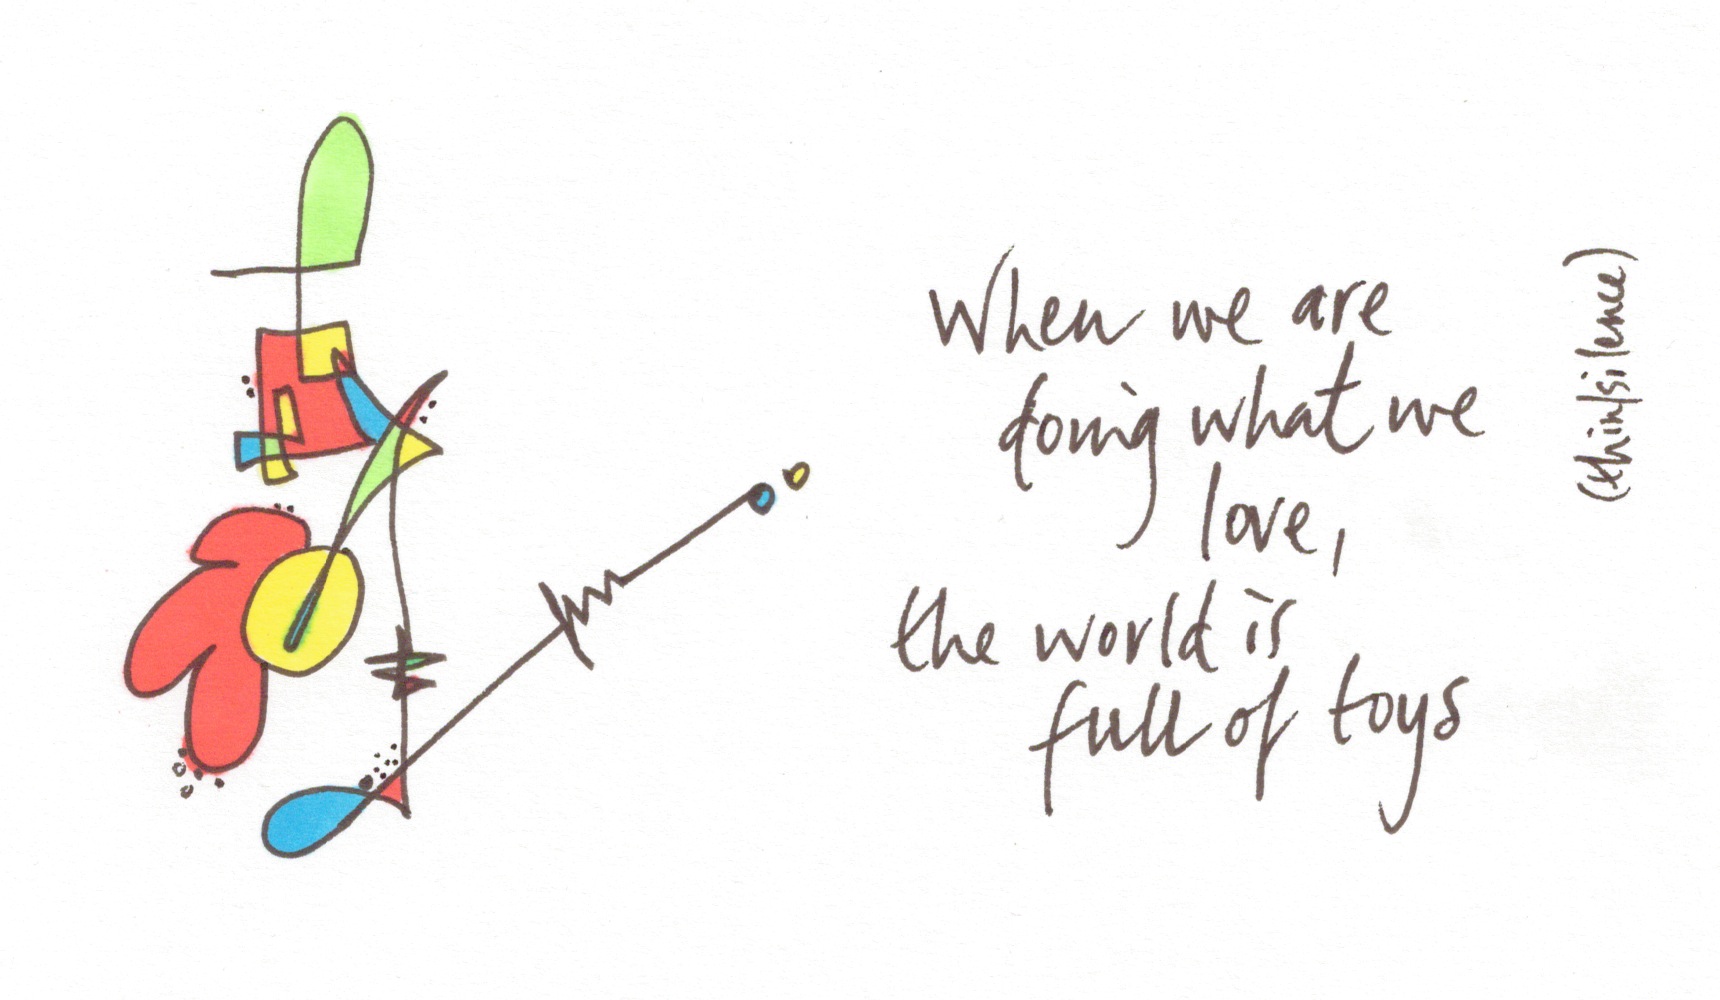 When we are
doing what we
love,
the world is
full of toys
(thin/silence)